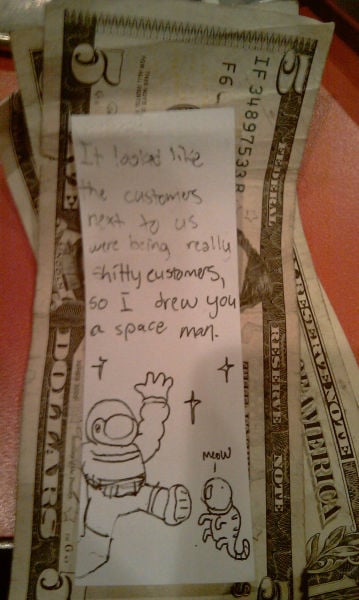 It looked like
the customers
next to us
were being really
shitty customers,
so I drew you
a space man.
meow
5
IF34897533B
F6
5
FEDERAL
RESERVE NOTE
DOLLARS
5
5
RESERVE NOTE
OF AMERICA
1